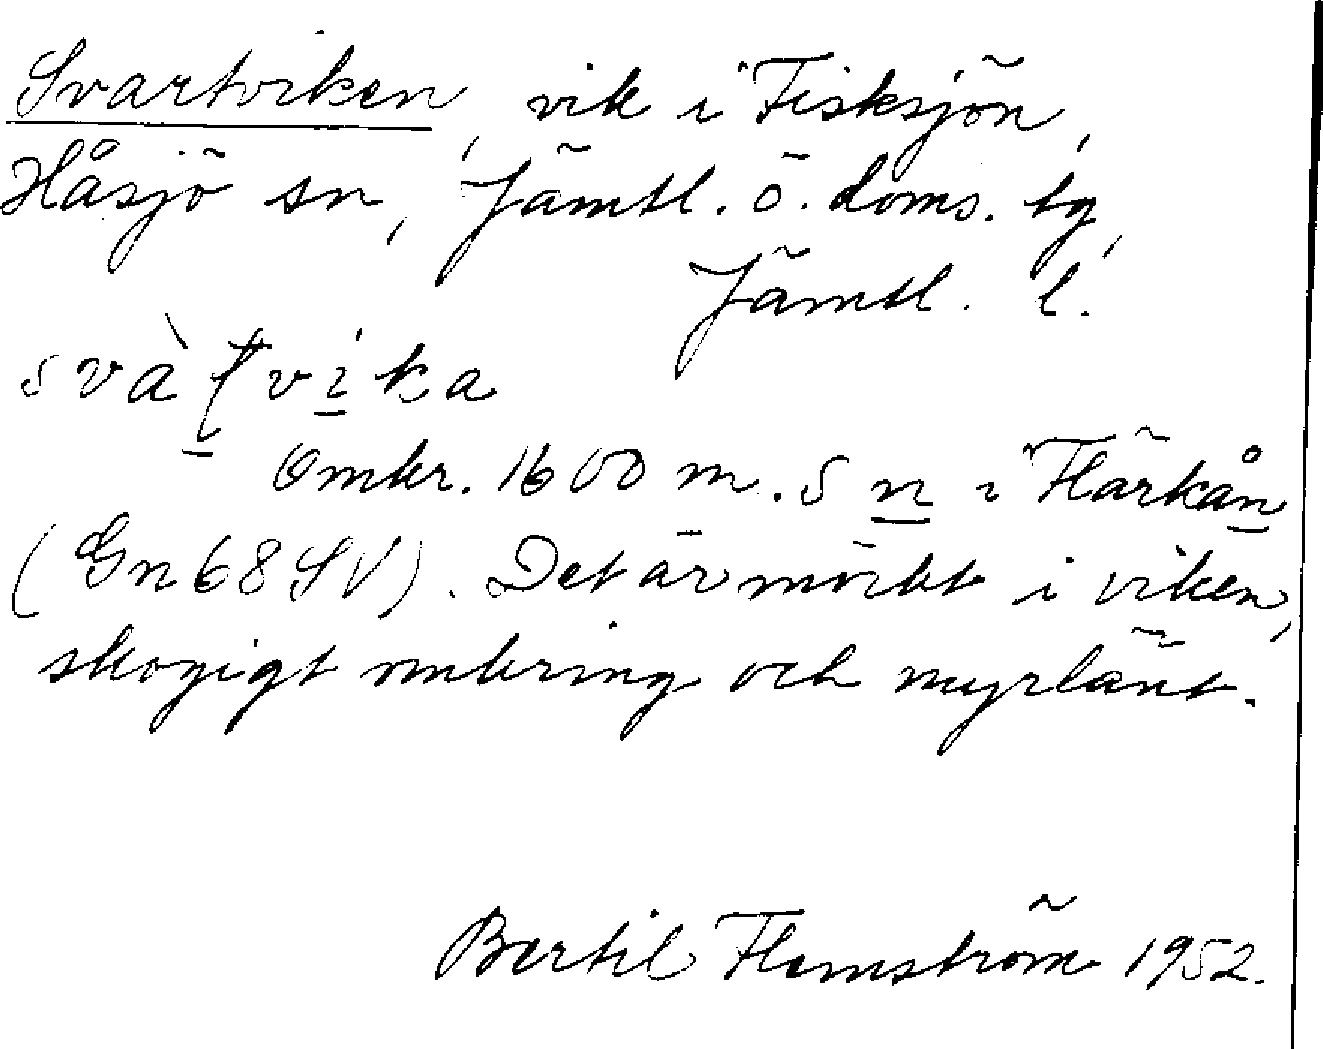 Svartviken, vik i Fisksjön,
Håsjö sn, Jämtl. ö. doms. tg,
Jämtl. l.
svàʈvika
Omkr. 1600 m. S n i Flärkån
(Gn 68 SV). Det är mörkt i viken,
skogigt omkring och myrlänt.
Bertil Flemström 1952.